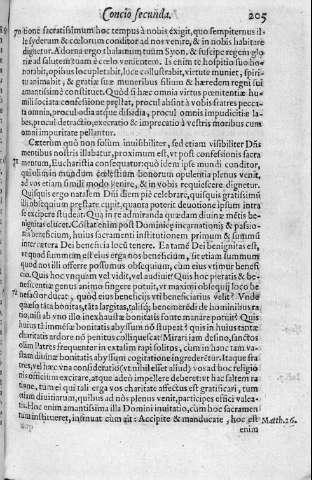 Concio secunda. 205
70 tionē sacratissimum hoc tempus à nobis exigit, quo sempiternus il-
le syderum & cœlorum conditor ad nos venire, & in nobis habitare
dignetur. Adorna ergo thalamum tuum Syon, & suscipe regem glo-
riæ ad salutem tuam è cœlo venientem. Is enim te hospitio suo ho-
norabit, opibus locupletabit, luce collustrabit, virtute muniet, spiri-
tu animabit, & gratiæ suæ muneribus filium & hæredem regni sui
amantissimè constituet. Quòd si hæc omnia virtus pœnitentiæ hu-
mili sociata confessione præstat, procul absint à vobis fratres pecca-
ta omnia, procul odia atque dissidia, procul omnis impudicitiæ la-
bes, procul detractio, execratio & imprecatio à vestris moribus cum
omni impuritate pellantur.
Cæterùm quò non solùm inuisibiliter, sed etiam visibiliter Dñs
mentibus nostris illabatur, proximum est, vt post confessionis sacra
71 mentum, Eucharistia consequatur: quò idem ipse mundi conditor,
qui olim in mundum cœlestium donorum opulentia plenus venit,
ad vos etiam simili modo venire, & in vobis requiescere dignetur.
Quisquis ergo natalem Dñi diem piè celebrare, quisquis gratissimũ
illi obsequium præstare cupit, quanta poterit deuotione ipsum intra
se excipere studeat. Qua in re admiranda quædam diuinæ mētis be-
nignitas elucet. Cōstat enim post Dominicę incarnationis & passio-
nis beneficium, huius sacramenti institutionem primum & summũ
inter cætera Dei beneficia locũ tenere. Ea tamē Dei benignitas est,
vt quod summum est eius erga nos beneficium, sit etiam summum
quod nos illi offerre possumus obsequium, cùm eius vtimur benefi
cio. Quis hoc vnquam vel vidit, vel audiuit? Quis hoc pietatis & be-
neficentiæ genus animo fingere potuit, vt maximi obsequij loco be
72 nefactor ducat, quòd eius beneficijs vti beneficiarius velit? Vnde
quæso tāta bonitas, tāta largitas, talisq́; benemerēdi de hominibus ra
tio, nisi ab vno illo inexhaustæ bonitatis fonte manare potuit? Quis
huius tā immēsæ bonitatis abyssum nō stupeat? quis in huius tantæ
charitatis ardore nō penitus colliquescat? Mirari iam desino, sanctos
olim Patres frequenter in extasim rapi solitos, cùm in hanc tam va-
stam diuinæ bonitatis abyssum cogitatione ingrederētur. Itaque fra
tres, vel hæc vna consideratio (vt nihil esset aliud) vos ad hoc religio
nis officium excitare, atque adeò impellere deberet: vt hac saltem ra
tione, tum ei qui tali erga vos charitate affectus est gratificari, tum
etiam diuitiarum, quibus ad nos plenus venit, participes effici valea-
tis. Hoc enim amantissima illa Domini inuitatio, cùm hoc sacramen
tum institueret, insinuat cùm ait: Accipite & manducate, hoc est Matth. 26.
enim